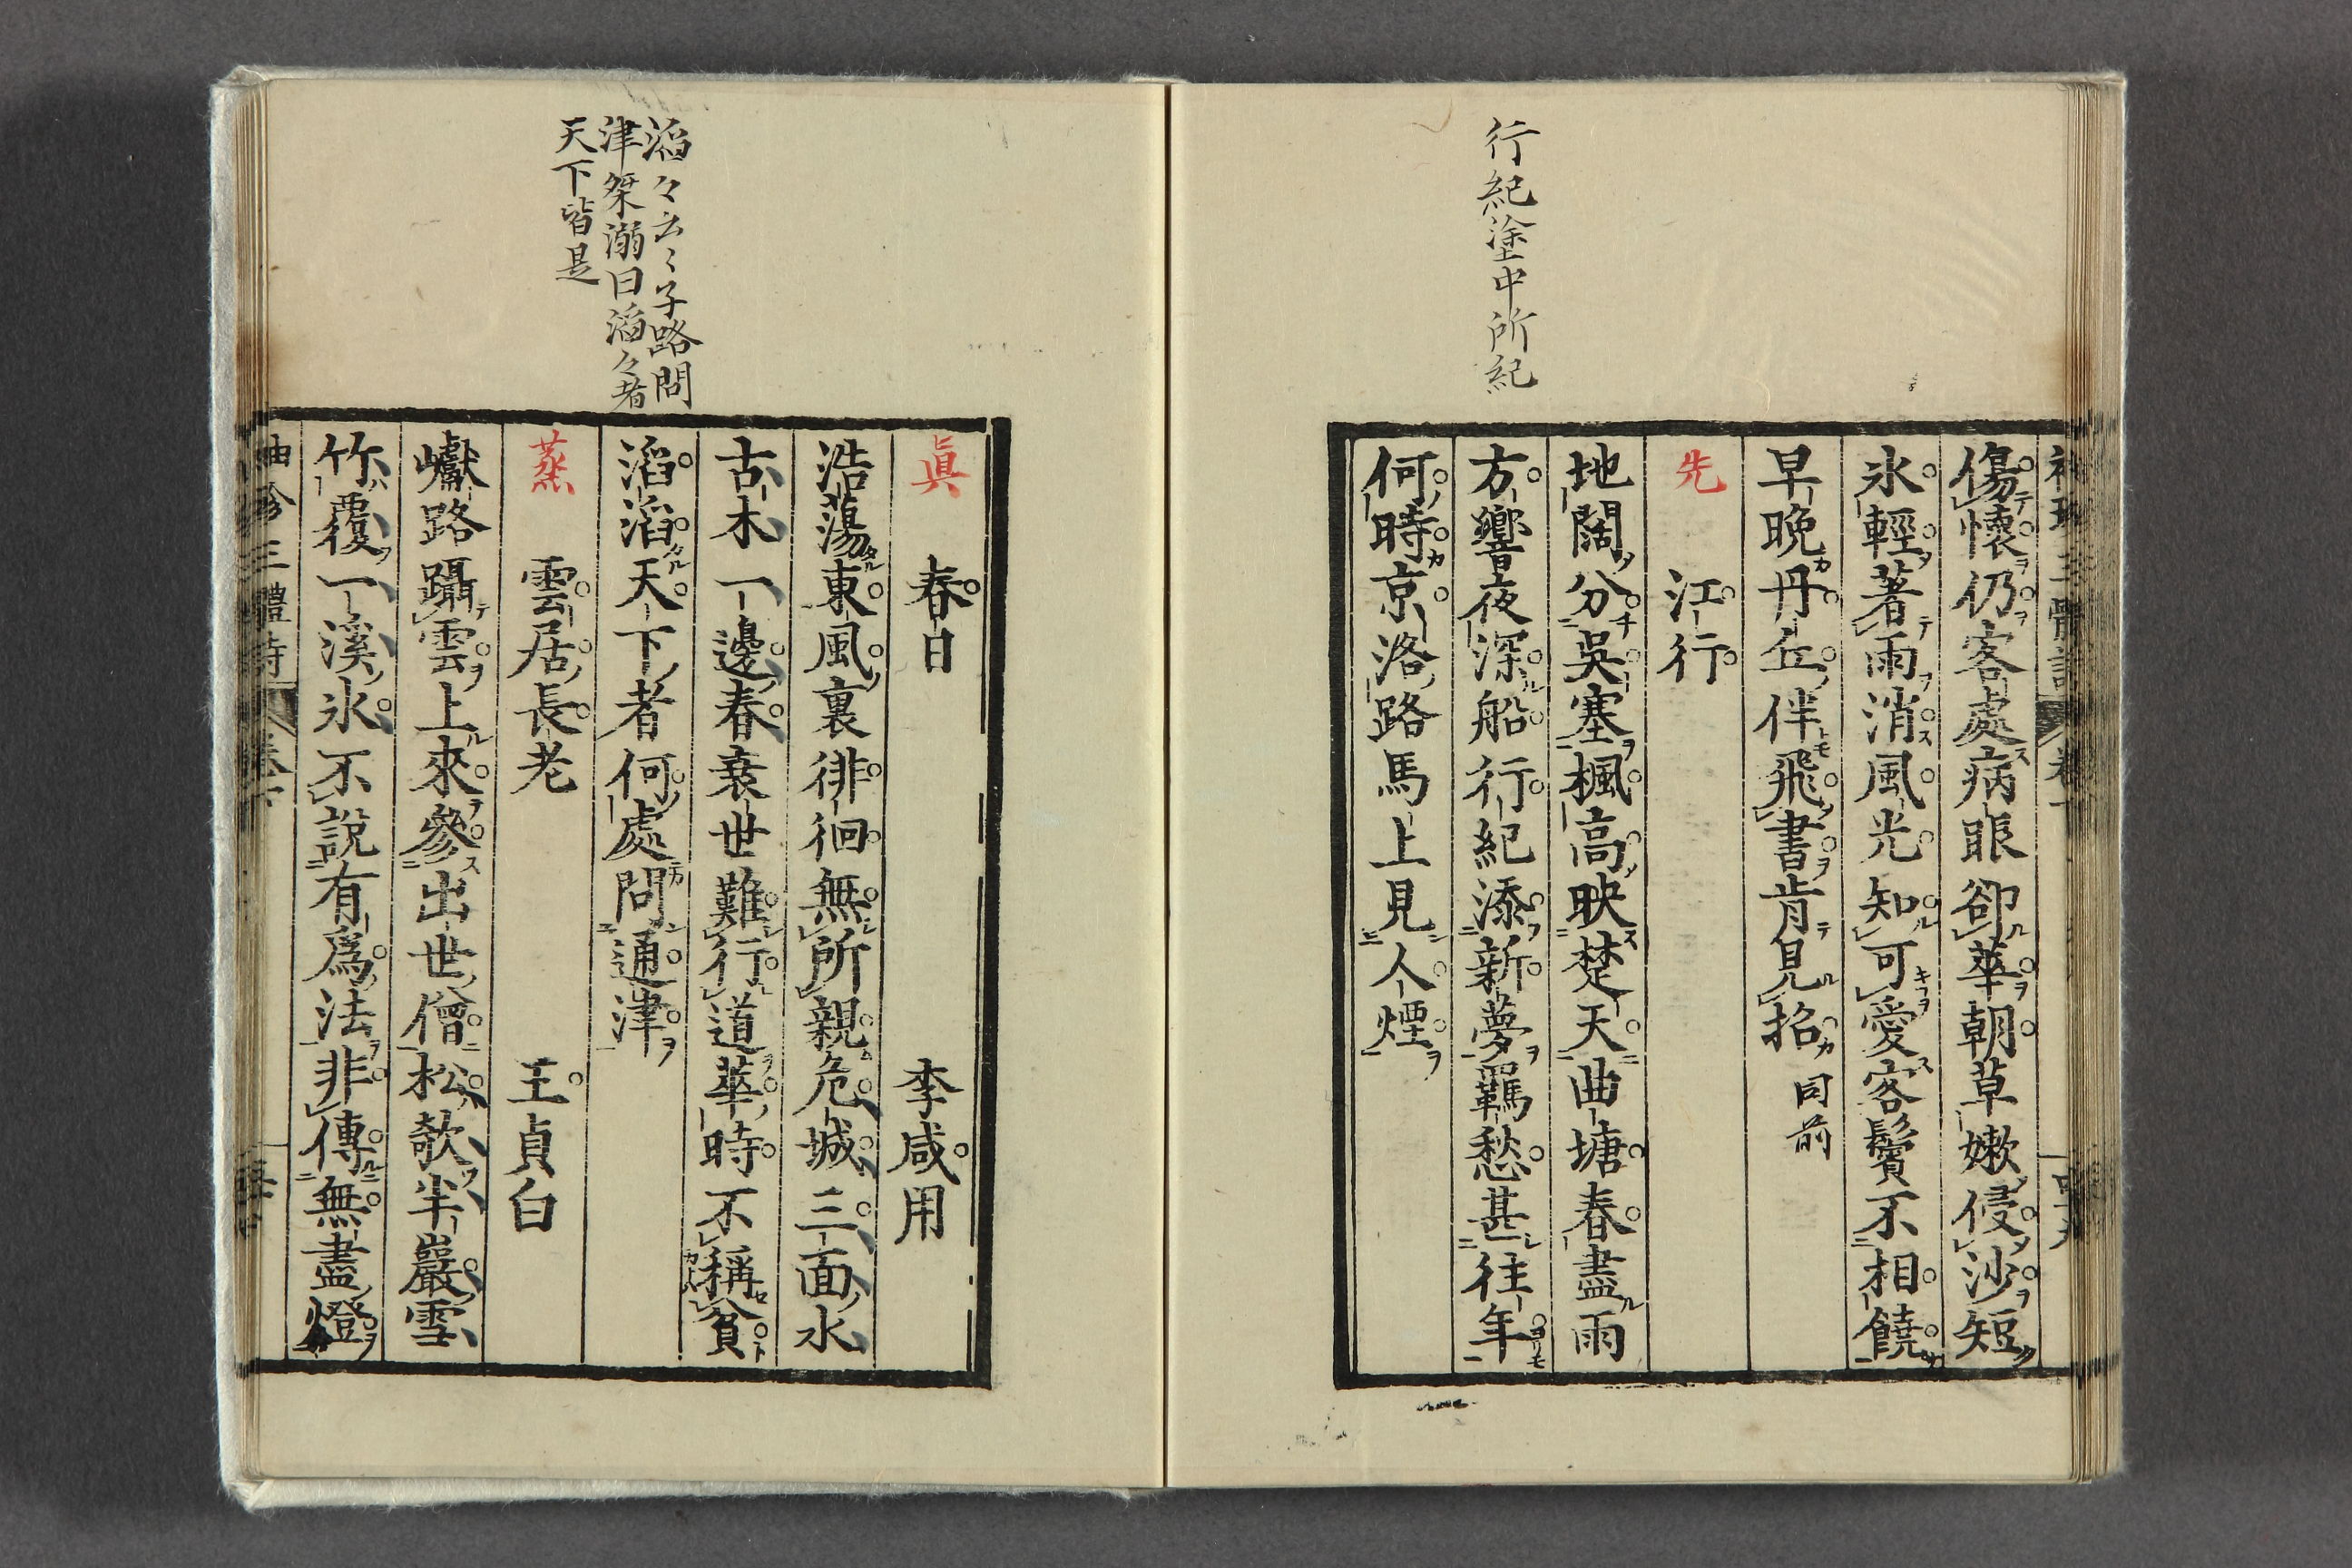 行紀塗中所紀
傷懷仍客處病眼卻華朝草嫩侵沙短
氷輕著雨消風光知可愛客鬢不相饒
早晚丹丘伴飛書肯見招 同前
先 江行
地闊分吳塞楓高映楚天曲塘春盡雨
方響夜深船行紀添新夢羈愁甚往年
何時京洛路馬上見人煙
滔々云々子路問
津桀溺曰滔々者
天下皆是
眞 春日 李咸用
浩蕩東風裏徘徊無所親危城三面水
古木一邊春衰世難行道華時不稱貧
滔滔天下者何處問通津
蒸 雲居長老 王貞白
巘路躡雲上來參出世僧松欹半巖雪
竹覆一溪氷不說有爲法非傳無盡燈
袖珍三體詩 卷下